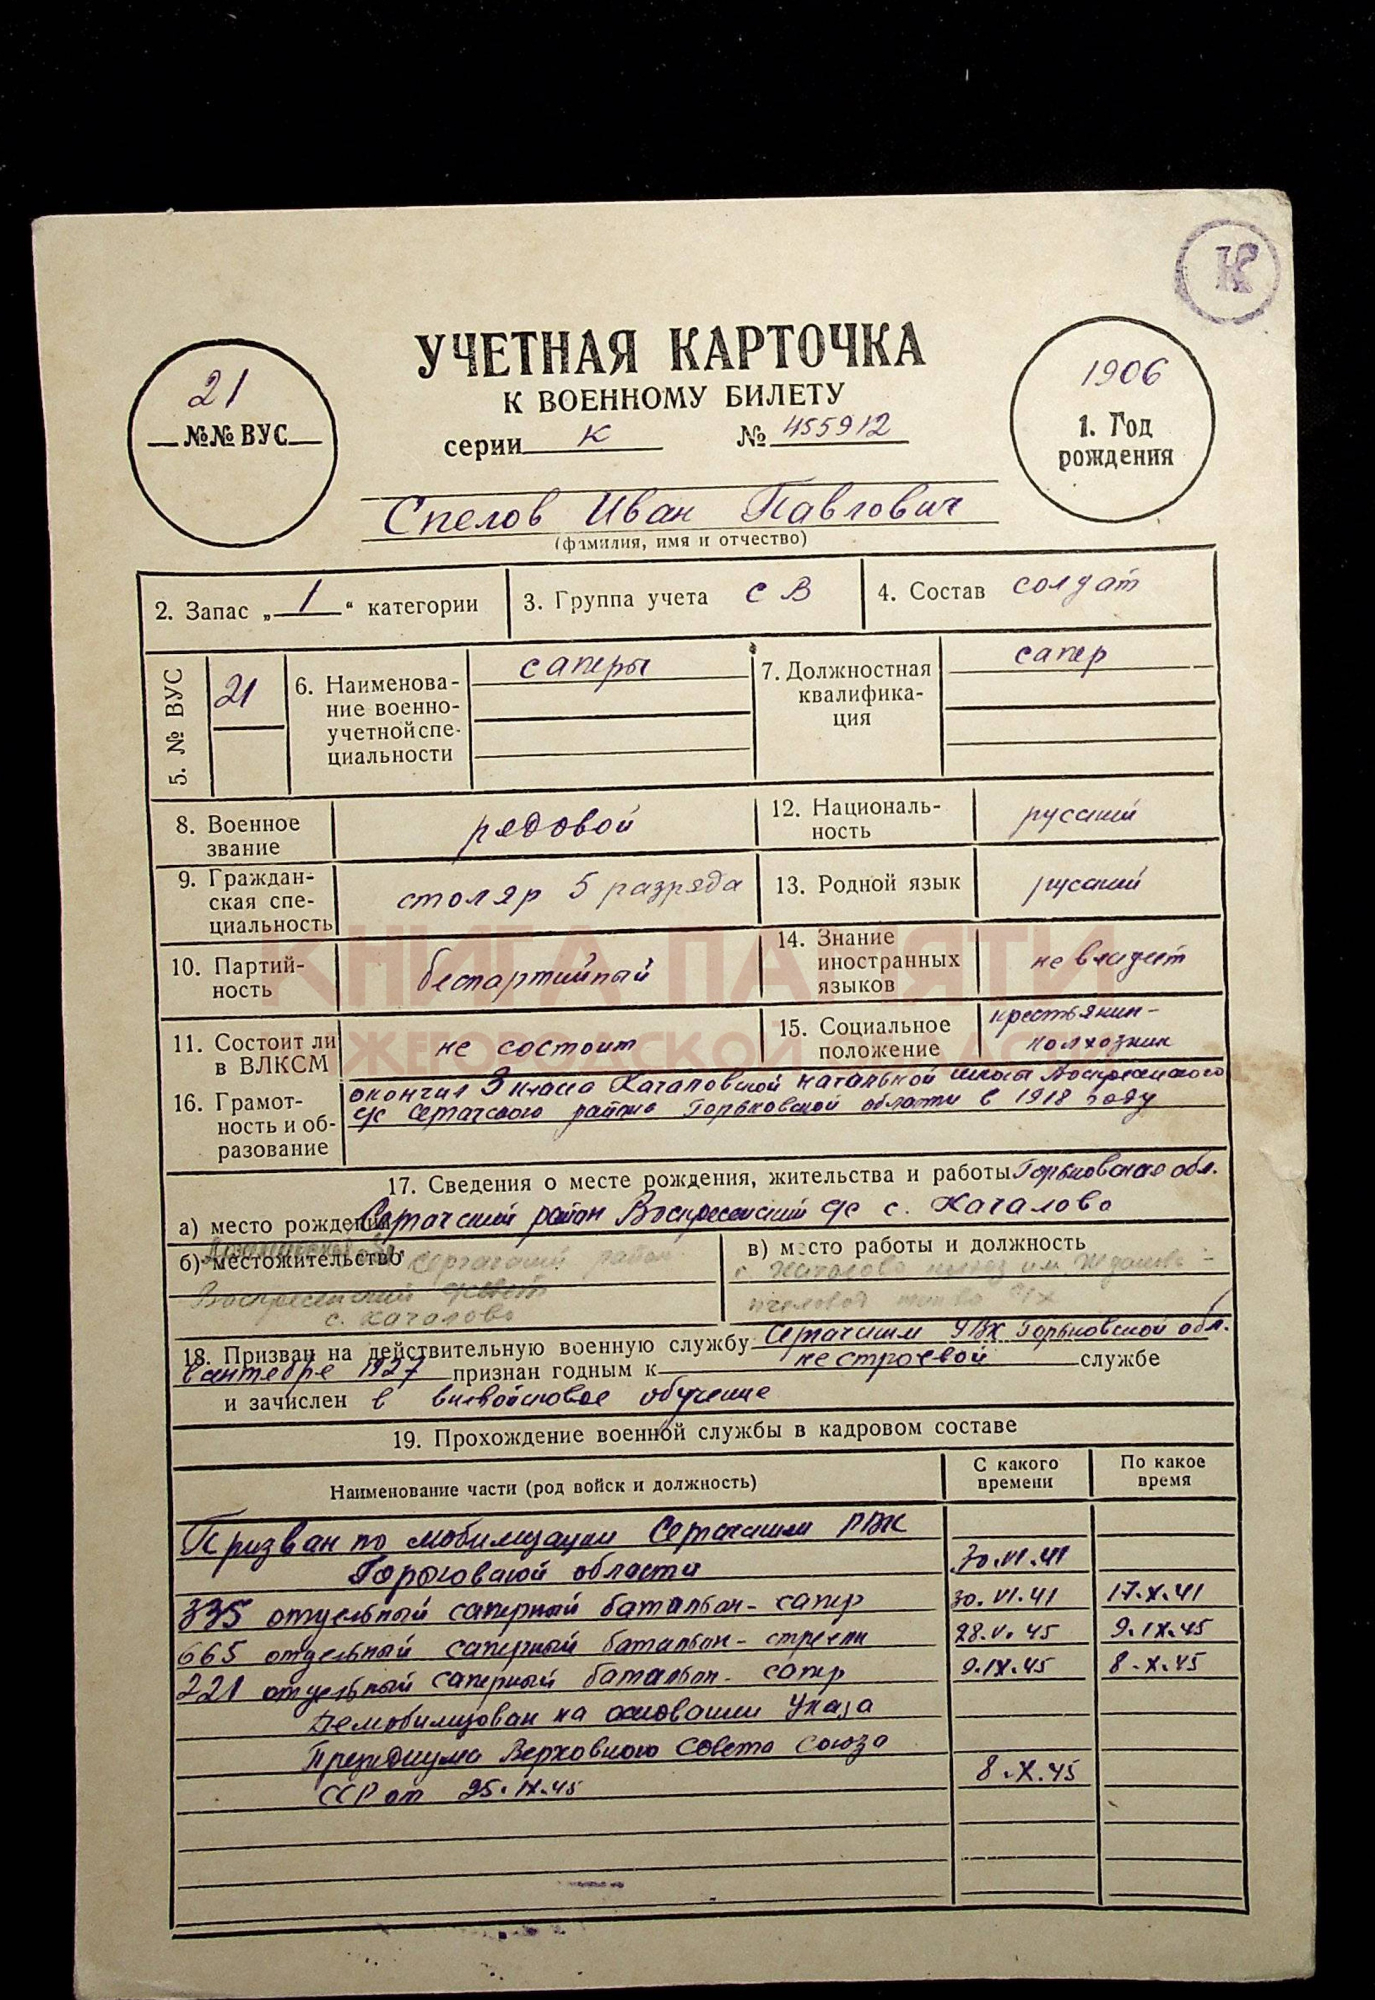 К
УЧЕТНАЯ КАРТОЧКА
К ВОЕННОМУ БИЛЕТУ
серии К № 455912
21
№№ ВУС
1906
1. Год
рождения
Спелов Иван Павлович
(фамилия, имя и отчество)
2. Запас „ 1 “ категории
3. Группа учета СВ
4. Состав солдат
5. № ВУС
21
6. Наименова-
ние военно-
учетной спе-
циальности
саперы
7. Должностная
квалифика-
ция
сапер
8. Военное
звание
рядовой
12. Националь-
ность
русский
9. Граждан-
ская спе-
циальность
столяр 5 разряда
13. Родной язык
русский
10. Партий-
ность
беспартийный
14. Знание
иностранных
языков
не владеет
11. Состоит ли
в ВЛКСМ
не состоит
15. Социальное
положение
крестьянин-
колхозник
16. Грамот-
ность и об-
разование
окончил 3 класса Качаловской начальной школы Воскресенского
с/с Сергачского района Горьковской области в 1918 году
17. Сведения о месте рождения, жительства и работы Горьковская обл.
а) место рождения Сергачский район Воскресенский с/с с. Качалово
б) местожительство Сергачский район
Воскресенский
с. Качалово
в) место работы и должность
с. Качалово колхоз им. Жданова -
18. Призван на действительную военную службу Сергачским РВК Горьковской обл.
в октябре 1927 признан годным к нестроевой службе
и зачислен в вневойсковое обучение
19. Прохождение военной службы в кадровом составе
Наименование части (род войск и должность)
С какого
времени
По какое
время
Призван по мобилизации Сергачским РВК
Горьковской области 30.VI.41
335 отдельный саперный батальон - сапер 30.VI.41 17.X.41
665 отдельный саперный батальон - стрелок 28.V.45 9.IX.45
221 отдельный саперный батальон - сапер 9.IX.45 8.X.45
Демобилизован на основании Указа
Президиума Верховного Совета Союза
ССР от 25.IX.45 8.X.45
КНИГА ПАМЯТИ
НИЖЕГОРОДСКОЙ ОБЛАСТИ